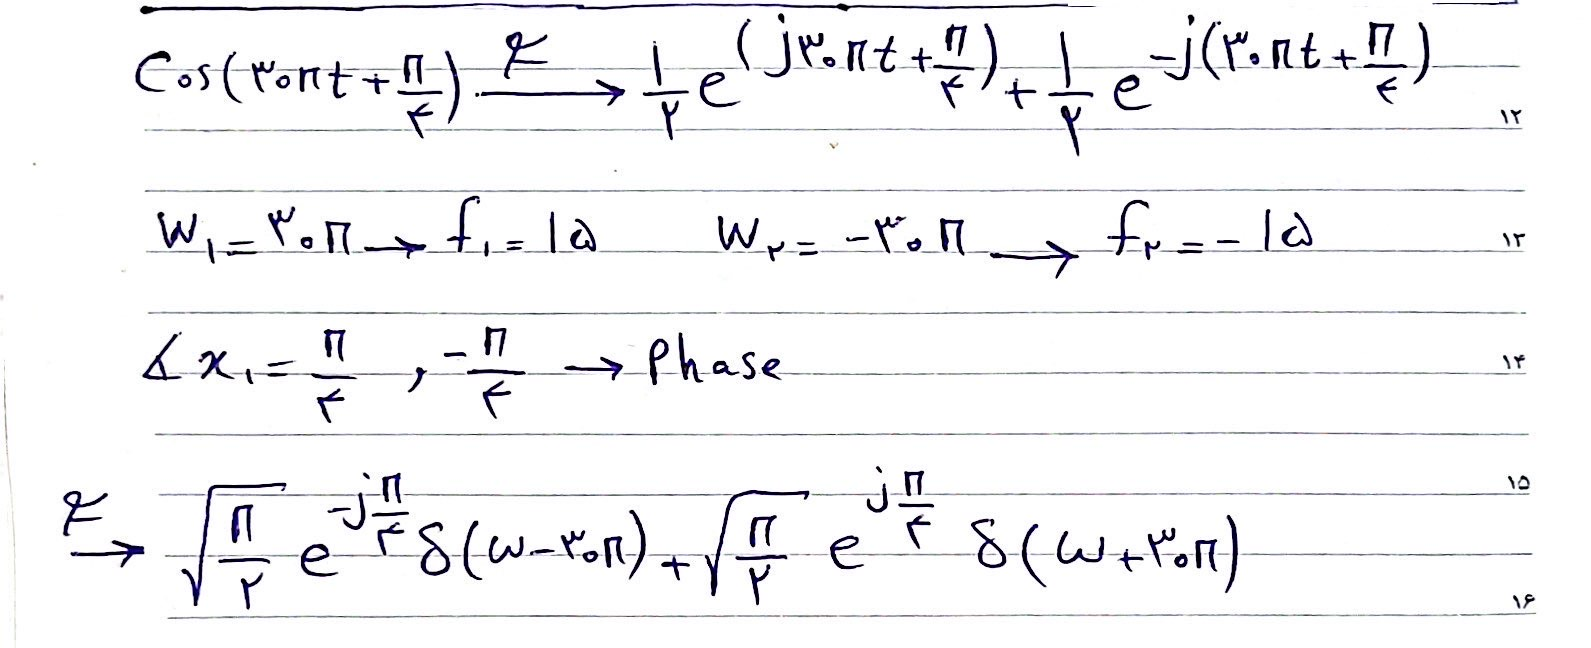 Cos(۳۰πt + π/۴) ℱ→ ۱/۲ e^(j۳۰πt + π/۴) + ۱/۲ e^-j(۳۰πt + π/۴) ۱۲
W₁ = ۳۰π → f₁ = ۱۵ W₂ = -۳۰π → f₂ = -۱۵ ۱۳
∡x₁ = π/۴ , -π/۴ → Phase ۱۴
۱۵
ℱ→ √(π/۲) e^(-jπ/۴) δ(ω-۳۰π) + √(π/۲) e^(jπ/۴) δ(ω+۳۰π)
۱۶